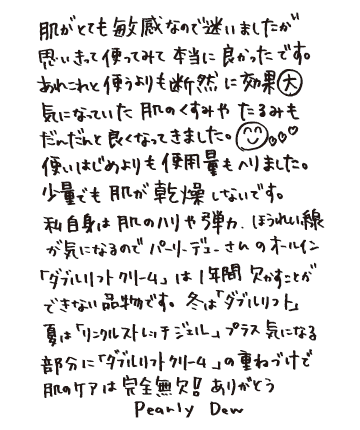 肌がとても敏感なので迷いましたが
思いきって使ってみて本当に良かったです。
あれこれと使うよりも断然に効果大
気になっていた肌のくすみやたるみも
だんだんと良くなってきました。
使いはじめよりも使用量もへりました。
少量でも肌が乾燥しないです。
私自身は肌のハリや弾力、ほうれい線
が気になるのでパーリーデューさんのオールイン
「ダブルリフトクリーム」は1年間欠かすことが
できない品物です。冬は「ダブルリフト」
夏は「リンクルストレッチジェル」プラス気になる
部分に「ダブルリフトクリーム」の重ねづけで
肌のケアは完全無欠!ありがとう
Pearly Dew